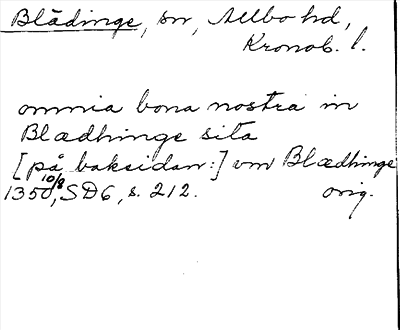 Blädinge, sn, Allbo hd,
Kronob. l.
omnia bona nostra in
Blædhinge sita
[på baksidan:] vm Blædhinge
1350 10/8, SD6, s. 212. orig.